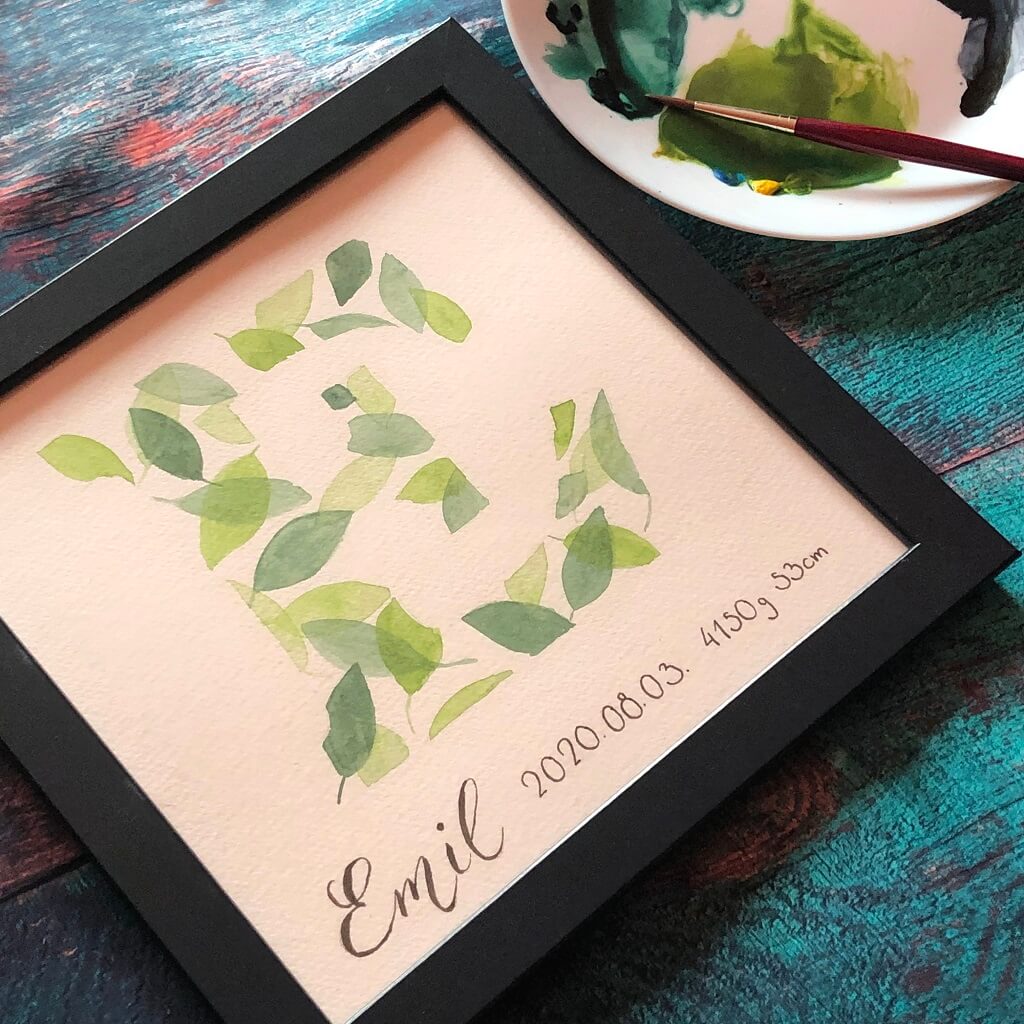 Emil 2020.08.03. 4150g 53cm